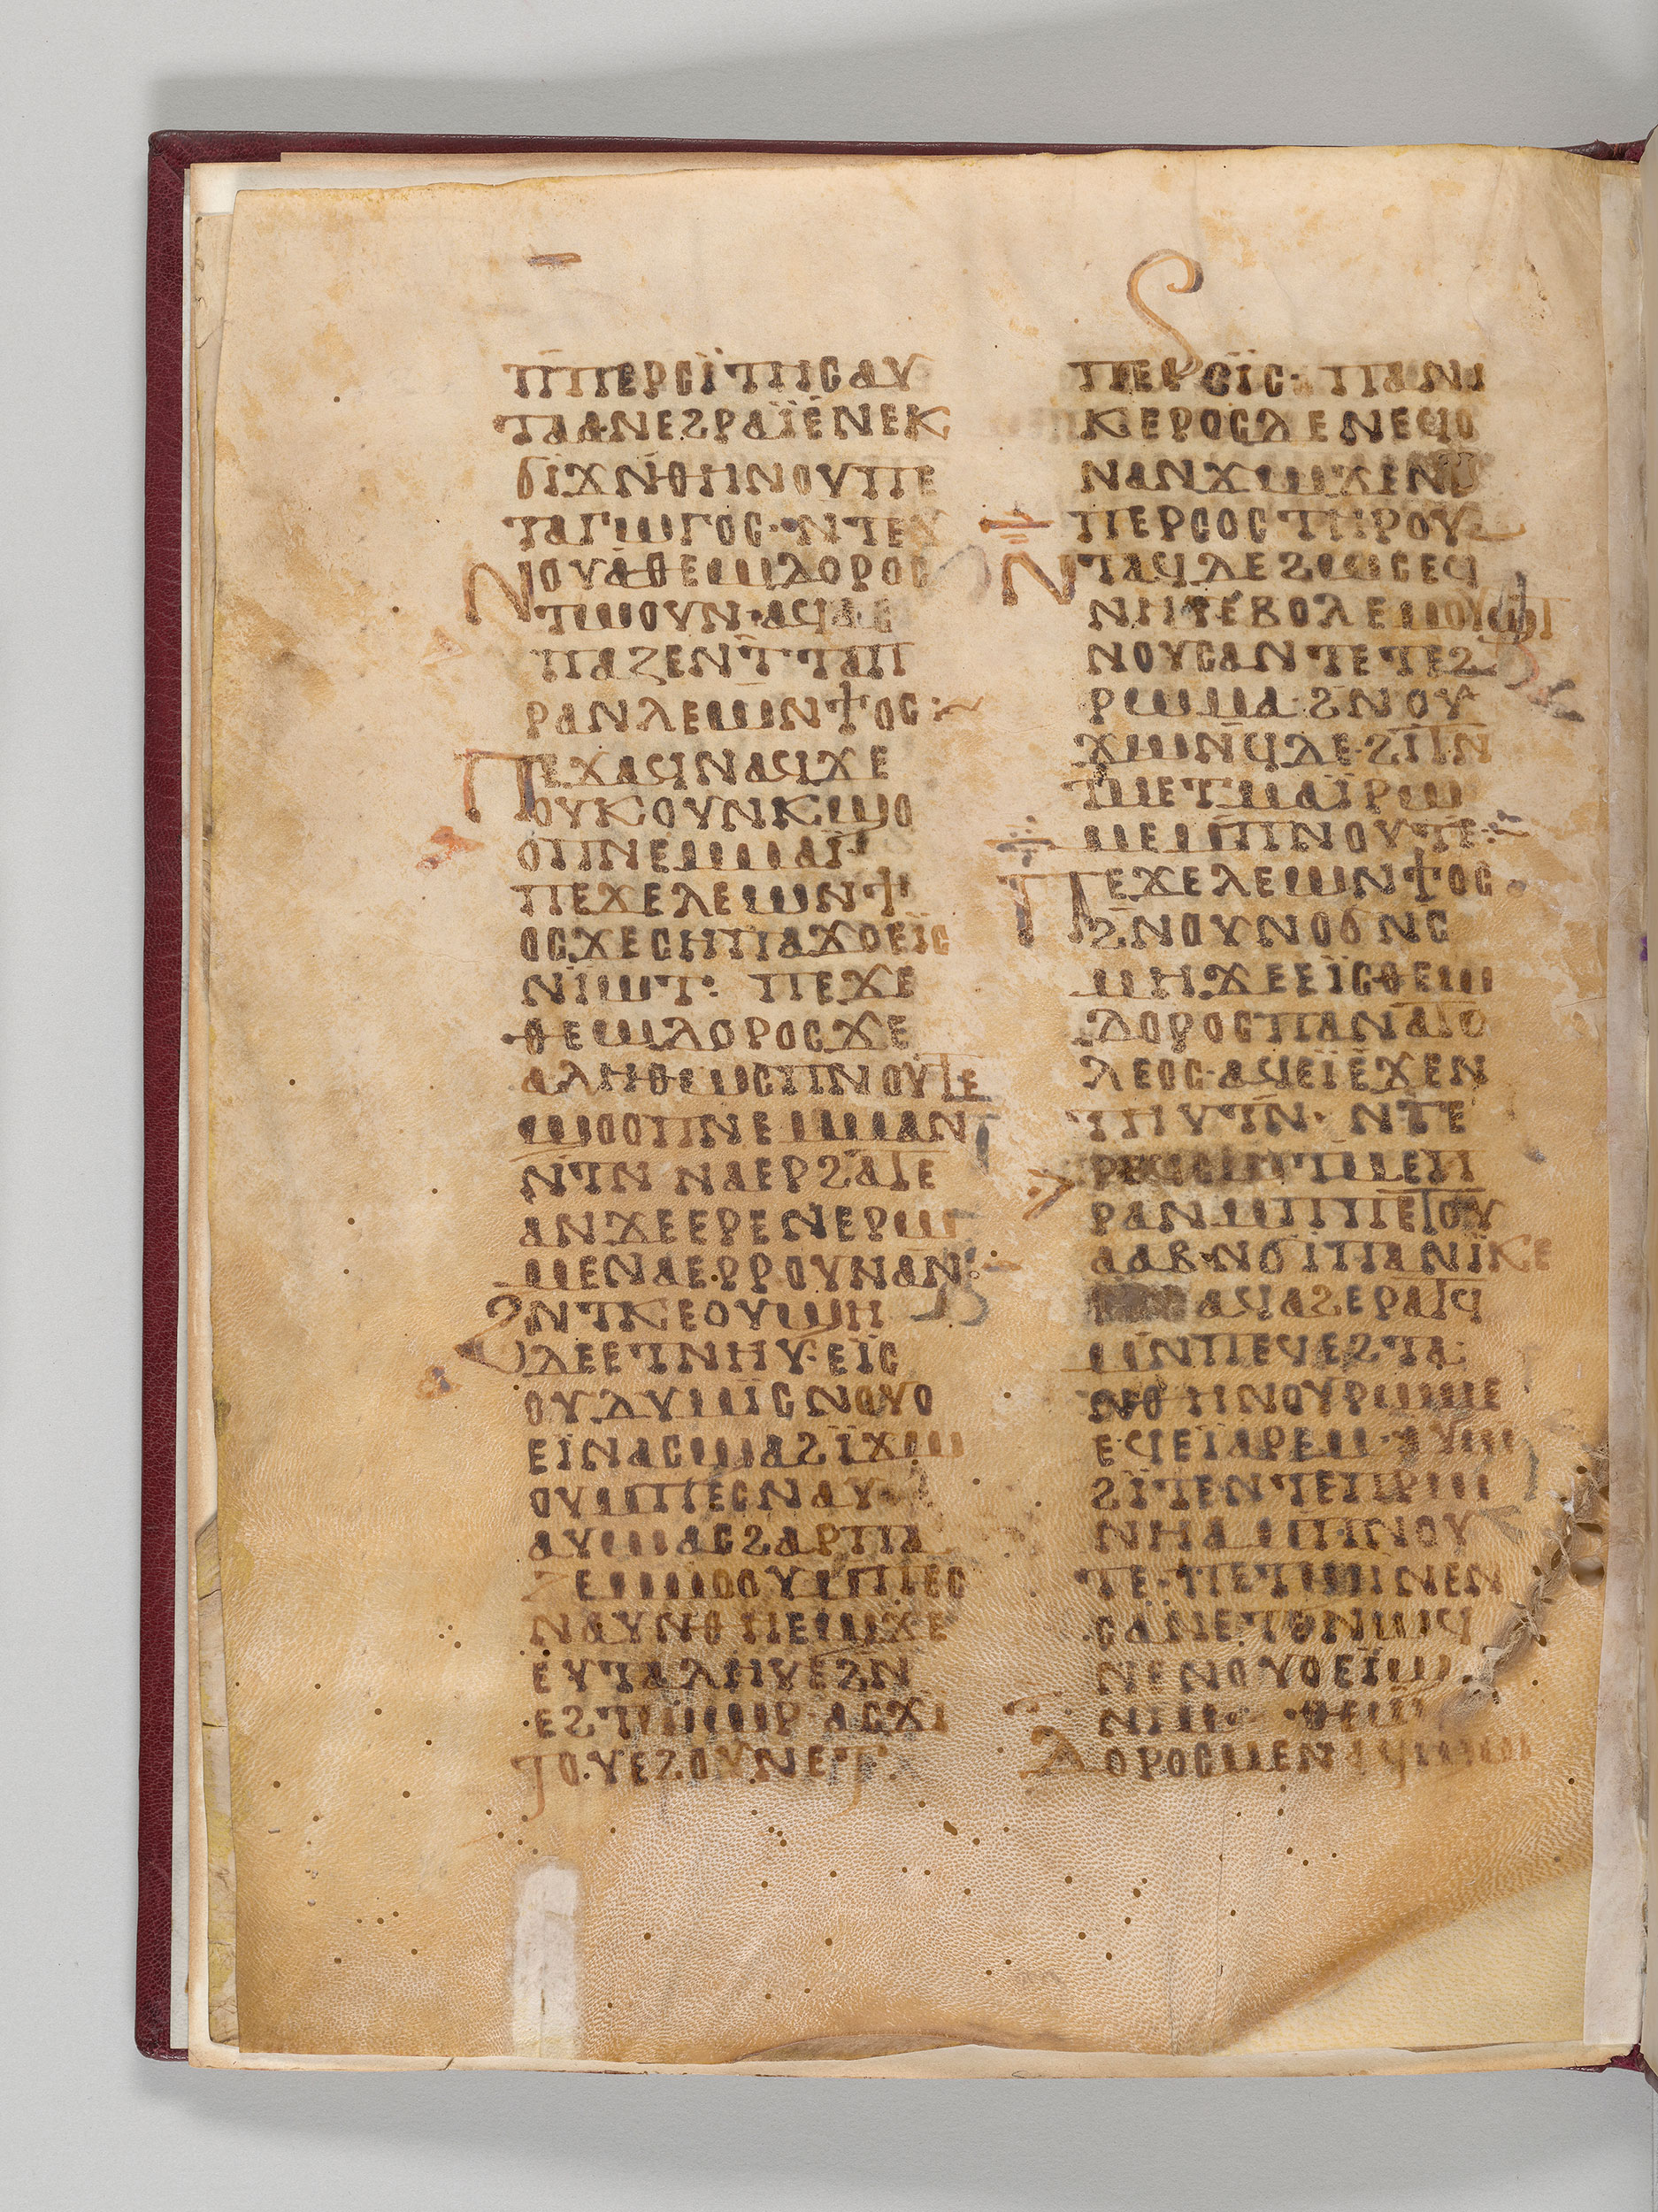 ⲡⲡⲉⲣⲥⲓⲧⲏⲥ ⲁⲩ
ⲧⲁⲁ·ⲛⲉϩⲣⲁⲓ̈ⲉⲛⲉⲕ
ϭⲓϫⲛⲑⲏⲛⲟⲩⲡⲉ
ⲧⲁⲅⲱⲅⲟⲥ·ⲛⲧⲉⲩ
ⲛⲟⲩⲁⲑⲉⲱⲇⲟⲣⲟⲥ
ⲧⲱⲟⲩⲛ·ⲁϥⲁⲗⲉ
ⲡⲁϩⲉⲛⲧ
ⲣⲁⲛⲗⲉⲱⲛϯⲟⲥ:
ⲡⲉϫⲁϥⲛⲁϥϫⲉ
ⲟⲩⲕⲟⲩⲛⲕϣⲟ
ⲟⲡⲛⲉⲙⲙⲁⲓ·
ⲡⲉϫⲉⲗⲉⲱⲛϯ
ⲟⲥϫⲉⲥⲏⲡⲁϫⲟⲉⲓ̈ⲥ
ⲛⲓⲱⲧ: ⲡⲉϫⲉ
ⲑⲉⲱⲇⲟⲣⲟⲥϫⲉ
ⲁⲗⲏⲑⲱⲥⲡⲛⲟⲩⲧⲉ
ϣⲟⲟⲡⲛⲉⲙⲙⲁⲛ
ⲛⲧⲛ ⲛⲁⲉⲣϩⲁⲧⲉ
ⲁⲛϫⲉⲉⲣⲉⲛⲉⲣⲱ
ⲙⲉⲛⲁⲉⲣⲣⲟⲩⲛⲁⲛ:
ϩⲛⲧⲕⲉⲟⲩϣⲏ
ⲇⲉⲉⲧⲛⲏⲩ·ⲉⲓ̈ⲥ
ⲟⲩⲇⲩⲙⲓ̈ⲥⲛⲟⲩⲟ
ⲉⲓ̈ⲛⲁⲥⲙⲁϩⲓ̈ϫⲱ
ⲟⲩⲙⲡⲉⲥⲛⲁⲩ
ⲁⲩⲱⲁⲥϩⲁⲣⲡⲁ
ⲍⲉⲙⲙⲟⲟⲩⲙⲡⲉⲥ
ⲛⲁⲩⲛⲑⲏⲉⲱϫⲉ
ⲉⲩⲧⲁⲗⲏⲩⲉϩⲛ
ⲉϩⲧⲱⲱⲣ·ⲁⲥϫⲓ
ⲧⲟⲩⲉϩⲟⲩⲛⲉⲧ
ⲡⲉⲣⲥⲓ̈ⲥ·ⲡⲁⲛⲓ
ⲕⲉⲣⲟⲥⲇⲉⲛⲉϥⲟ
ⲛⲁⲛⲭⲱⲭⲉⲛ
ⲡⲉⲣⲥⲟⲥⲧⲏⲣⲟⲩ
ⲛⲧⲁϥⲇⲉϩⲱⲱⲥⲉϥ
ⲛⲏⲧⲉⲃⲟⲗⲉⲙⲟⲩϣⲧ
ⲛⲟⲩⲥⲁⲛⲧⲉⲧⲉϩ
ⲣⲱⲙⲁ·ϩⲛⲟⲩ
ϫⲱⲛϥⲇⲉ·ϩⲓⲧⲛ
ⲧⲙⲉⲧⲙⲁⲓ̈ⲣⲱ
ⲙⲉⲙⲡⲛⲟⲩⲧⲉ:
ⲡⲉϫⲉⲗⲉⲱⲛϯⲟⲥ
ϩⲛⲟⲩⲛⲟϭⲛⲥ
ⲙⲏϫⲉⲉⲓ̈ⲥⲑⲉⲱ
ⲇⲟⲣⲟⲥⲡⲁⲛⲁⲧⲟ
ⲗⲉⲟⲥ·ⲁϥⲉⲓ̈ⲉϫⲉⲛ
ⲡⲩⲧⲛ·ⲛⲧⲉ
ⲣⲉϥⲥⲱⲧⲙⲉⲡ
ⲣⲁⲛⲙⲡⲡⲉⲧⲟⲩ
ⲁⲁⲃ·ⲛϭⲓⲡⲁⲛⲓ̈ⲕⲉ
ⲁϥⲁϩⲉⲣⲁⲧϥ
ⲙⲛⲡⲉϥⲉϩⲧⲁ·
ⲛⲑⲏⲛⲟⲩⲣⲱⲙⲉ
ⲉϥⲉⲓ̈ⲁⲣⲉⲙ·ⲁⲩⲱ
ϩⲓ̈ⲧⲉⲛⲧⲉⲡⲣⲱ
ⲛⲏⲁⲙⲡⲛⲟⲩ
ⲧⲉ·ⲡⲉⲧϣⲓⲛⲉⲛ
ⲥⲁⲛⲉⲧⲟⲛⲱϥ
ⲛⲉⲛⲟⲩⲟⲉⲓ̈ϣ
ⲛⲓⲙ·ⲑⲉⲱ
ⲇⲟⲣⲟⲥⲙⲉⲛ